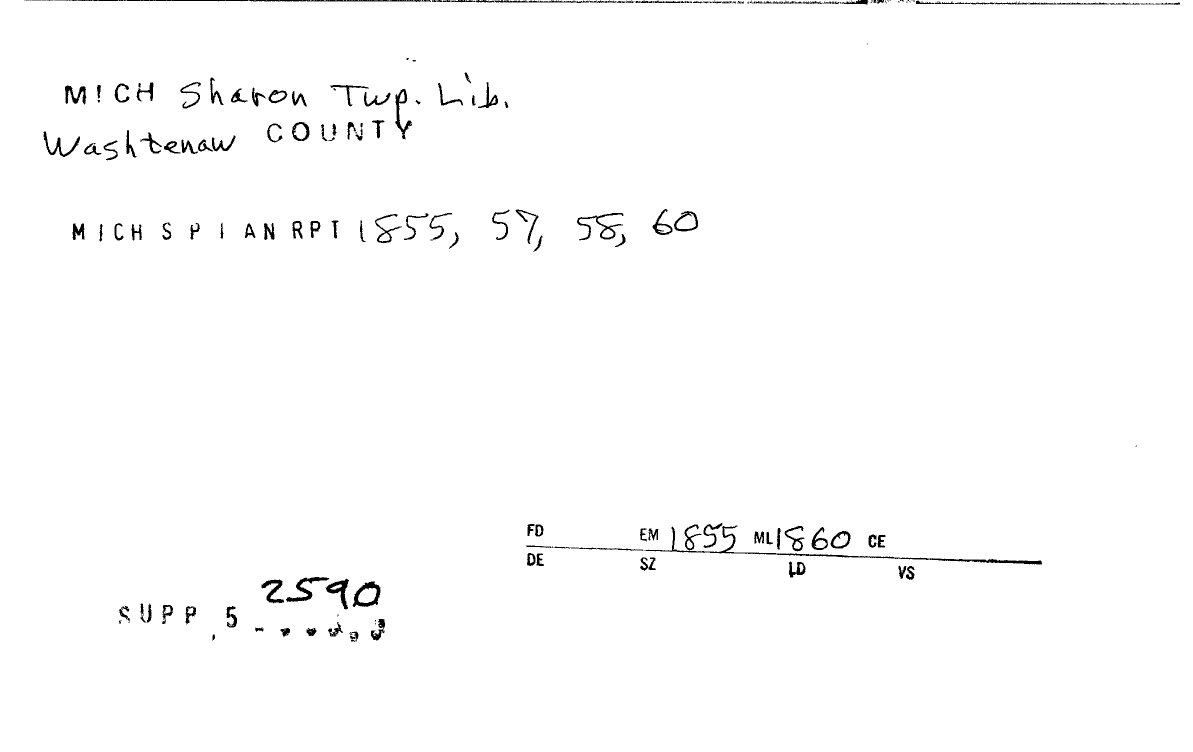 MICH Sharon Twp. Lib.
Washtenaw COUNTY
MICH S P I AN RPT 1855, 57, 58, 60
FD EM 1855 ML 1860 CE
DE SZ LD VS
2590
SUPP, 5